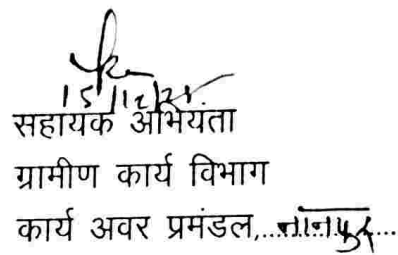 15/12/21
सहायक अभियंता
ग्रामीण कार्य विभाग
कार्य अवर प्रमंडल,....नानपुर....